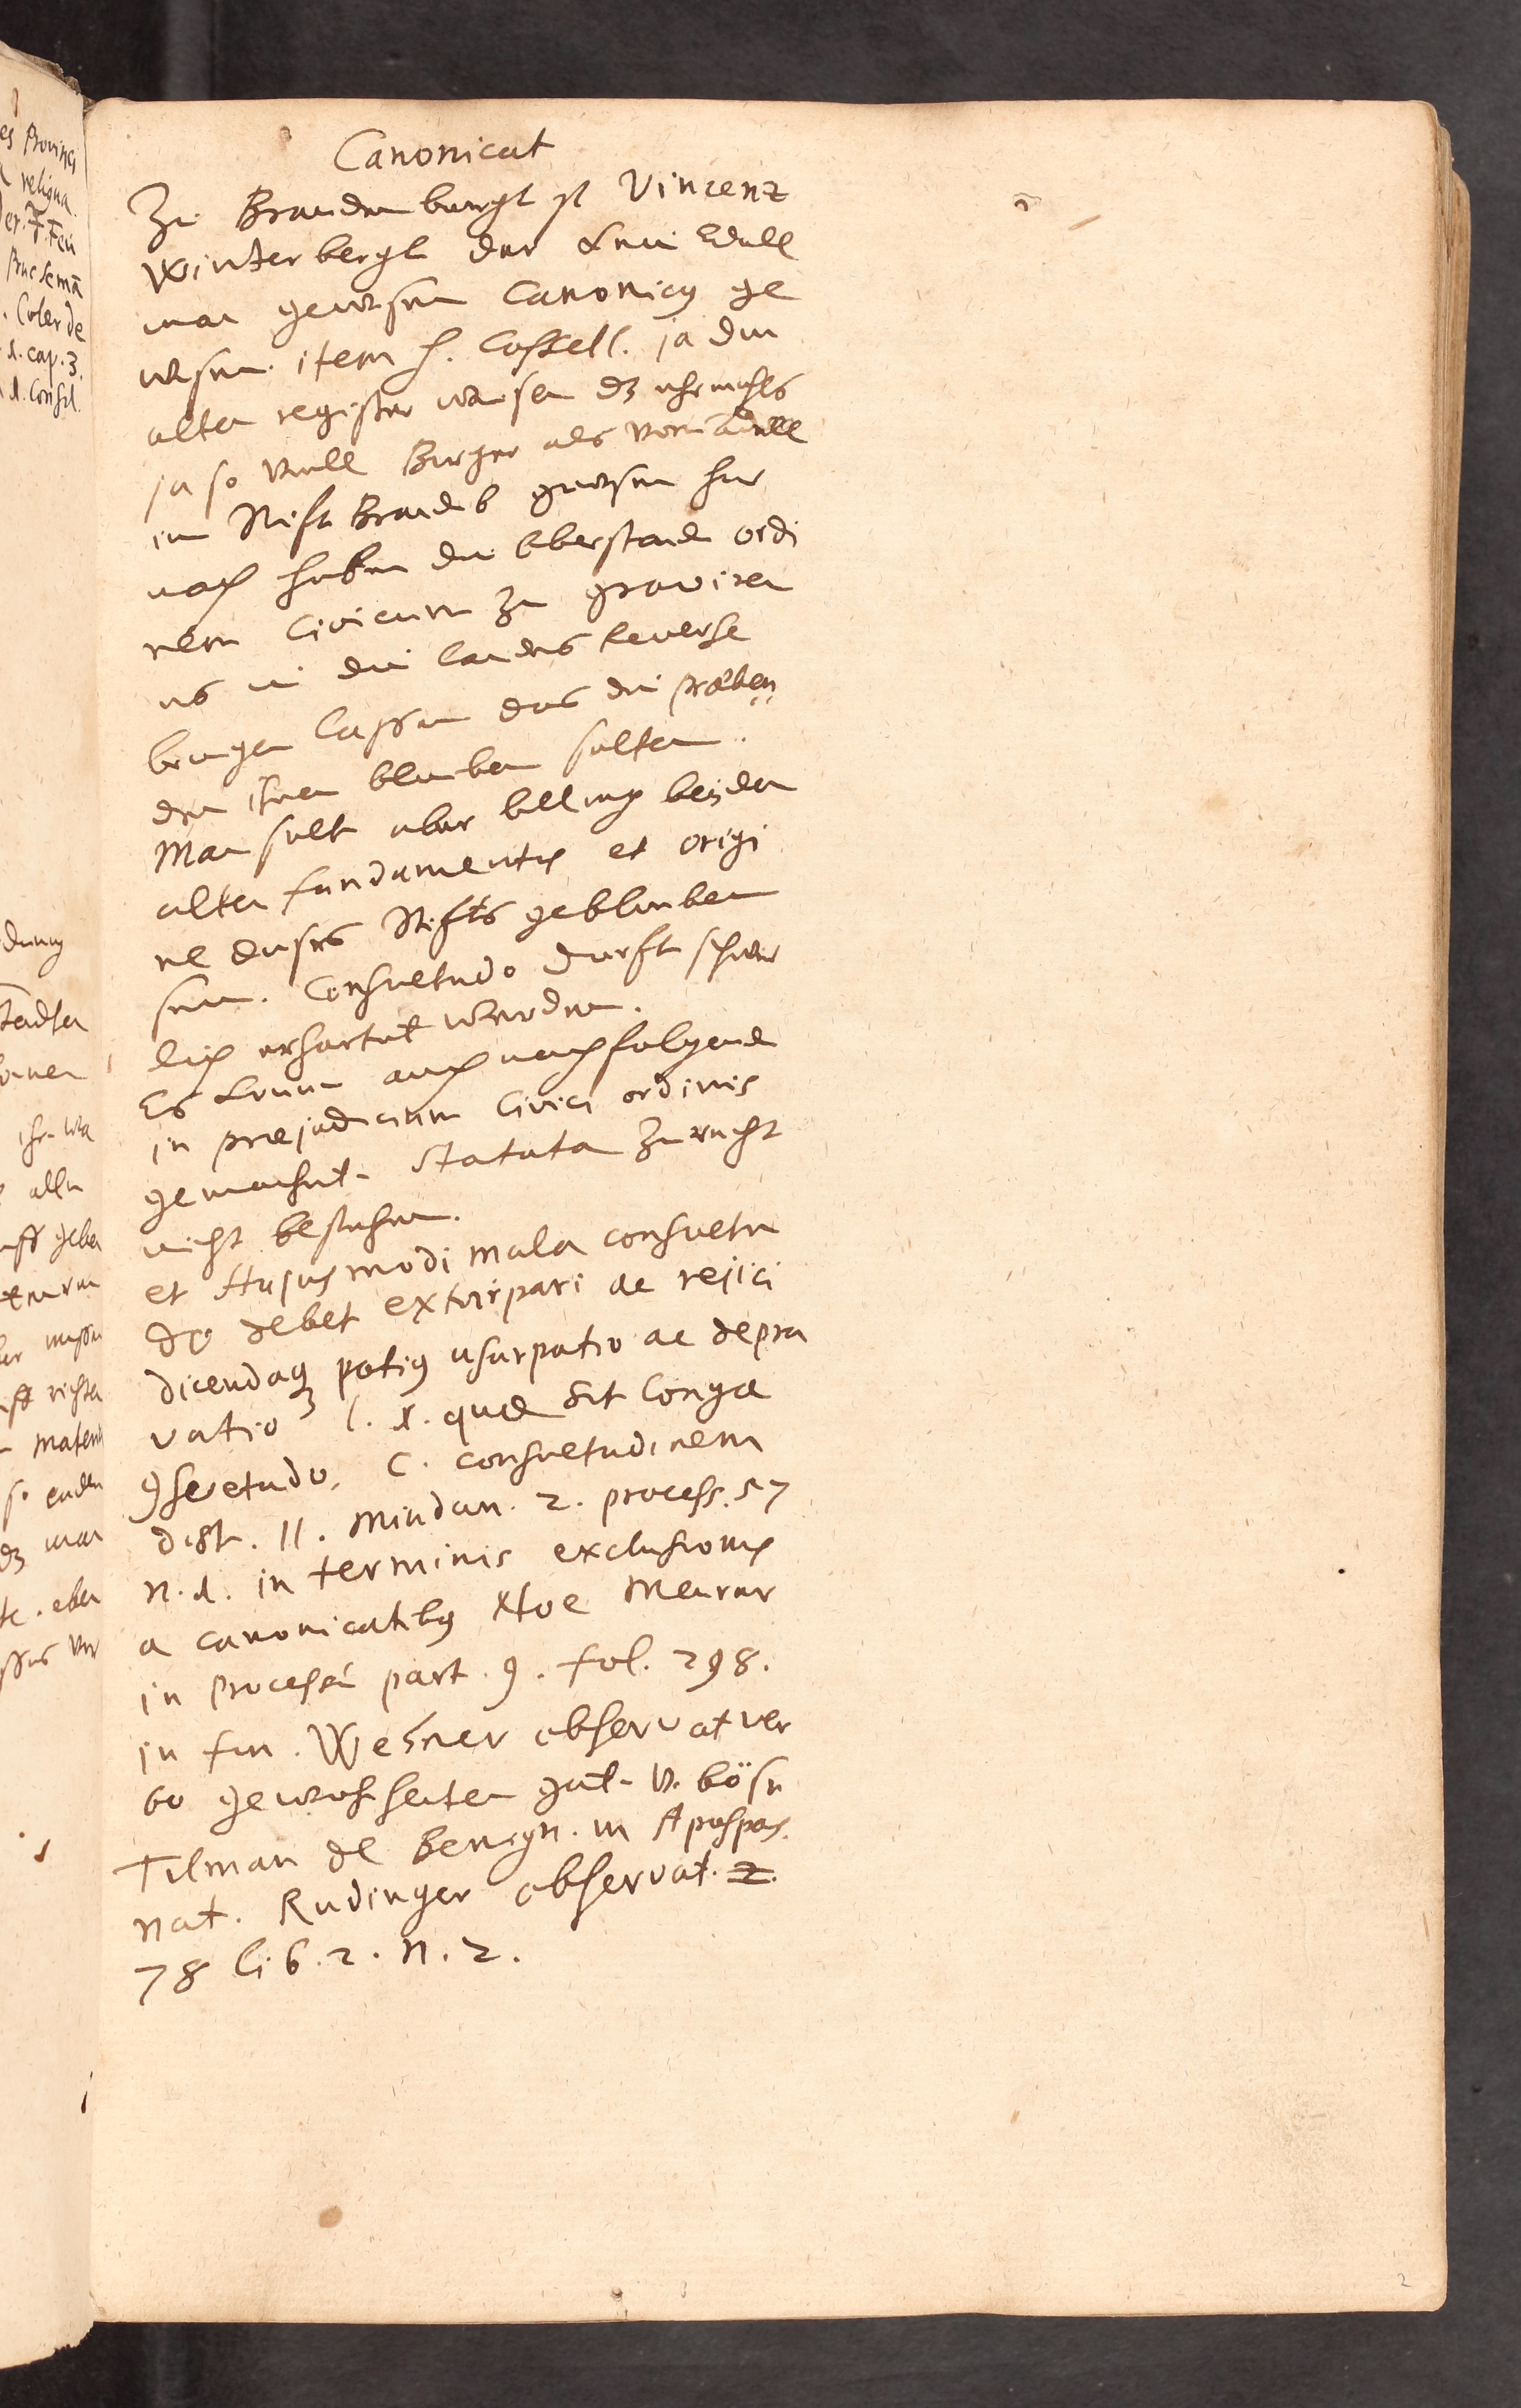 Canonicat
Zu Brandenburgk ist Vincenz
Winterbergk der kein Edell
man gewesen Canonicus ge
wesen. item H. Cassell. ja die
alten register weisen dz ehrmahls
ja so viell Burger als vom Adell
im Stift Brandeb gewesen her
nach haben die Oberstende ordi
nem Civicum zu graviren
es in die landes reverse
bringen lassen das die præben
den ihnen bleiben solten.
Man solt aber billich bei den
alten fundamentis et origi
ne dieses Stifts geblieben
sein. Consuetudo durfft schwer
lich erhartet werden.
Es konnen auch nachfolgende
in præjudicium Civici ordinis
gemachete statuta zu recht
nicht bestehen.
et Hujusmodi mala consuetu
do debet extirpari ac rejici
dicendaque potius usurpatio ac depra
vatio l. 1. quæ sit longa
consuetudo. C. consuetudinem
dist. 11. Mindan. 2. process. 57
n. 1. in terminis exclusionis
a canonicatibus Noe Meurer
in Processu part. 9. fol. 298.
in fin. Wesner observat ver
bo gewohheiten gute v. böse
Tilman de Benign. in Apospas.
nat. Rudinger observat. 2.
78 lib. 2. n. 2.
es Provinci
religua
Coler de
1. cap. 3.
1. Consil.
dung
alle
geben
richten
eben
2